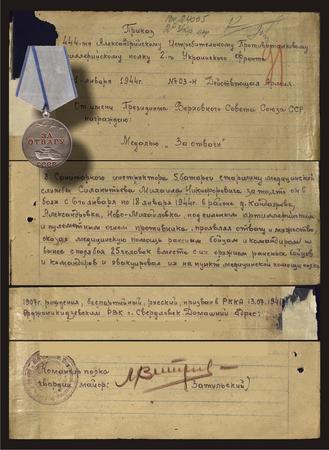 Приказ
444-му Александрийскому Истребительному Противотанковому
Артиллерийскому полку 2-го Украинского Фронта
января 1944г. № 03-Н Действующая Армия.
От имени Президиума Верховного Совета Союза ССР
награждаю:
Медалью „За отвагу"
ЗА
ОТВАГУ
СССР
8. Санитарного инструктора 5 батареи старшину медицинской
службы Силантьева Михаила Никифоровича за то, что он в
боях с 6го января по 18 января 1944г. в районе
Александровка, Ново-Михайловка, под сильным артиллерийским
и пулеметным огнем противника, проявляя отвагу и мужество
оказал медицинскую помощь раненым бойцам и командирам и
вынес с поля боя 25 человек вместе с их оружием раненых бойцов
и командиров и эвакуировал их на пункт медицинской помощи полка.
1907г. рождения, беспартийный, русский, призван в РККА 13.07.1941
Орджоникидзевским РВК г. Свердловск. Домашний адрес:
Командир полка
гвардии майор: (Затыльский)